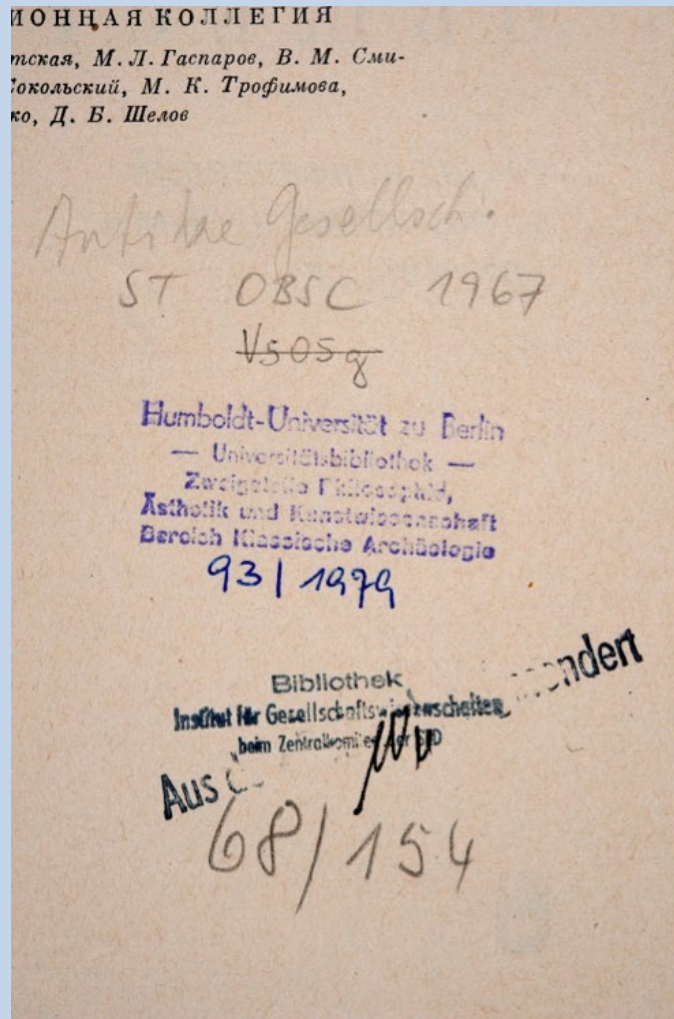 ИОННАЯ КОЛЛЕГИЯ
тская, М. Л. Гаспаров, В. М. Сми-
Сокольский, М. К. Трофимова,
ко, Д. Б. Шелов
Antike Gesellsch.
ST OBSC 1967
V505g
Humboldt-Universität zu Berlin
— Universitätsbibliothek —
Zweigstelle Philosophie,
Ästhetik und Kunstwissenschaft
Bereich Klassische Archäologie
93 | 1979
Bibliothek
Institut für Gesellschaftswissenschaften
beim Zentralkomitee der SED
Aus
ondert
68/154